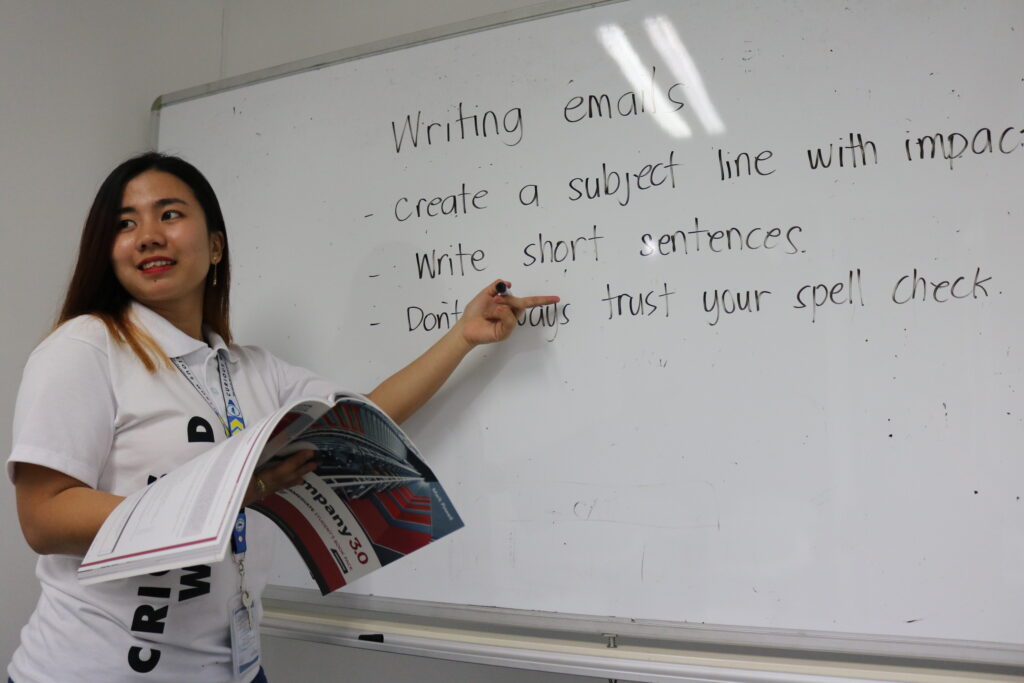 Writing emails
- Create a subject line with impac
- Write short sentences.
- Don't ways trust your spell check.
mpany 3.0
Mark Powell
CRI
W
D